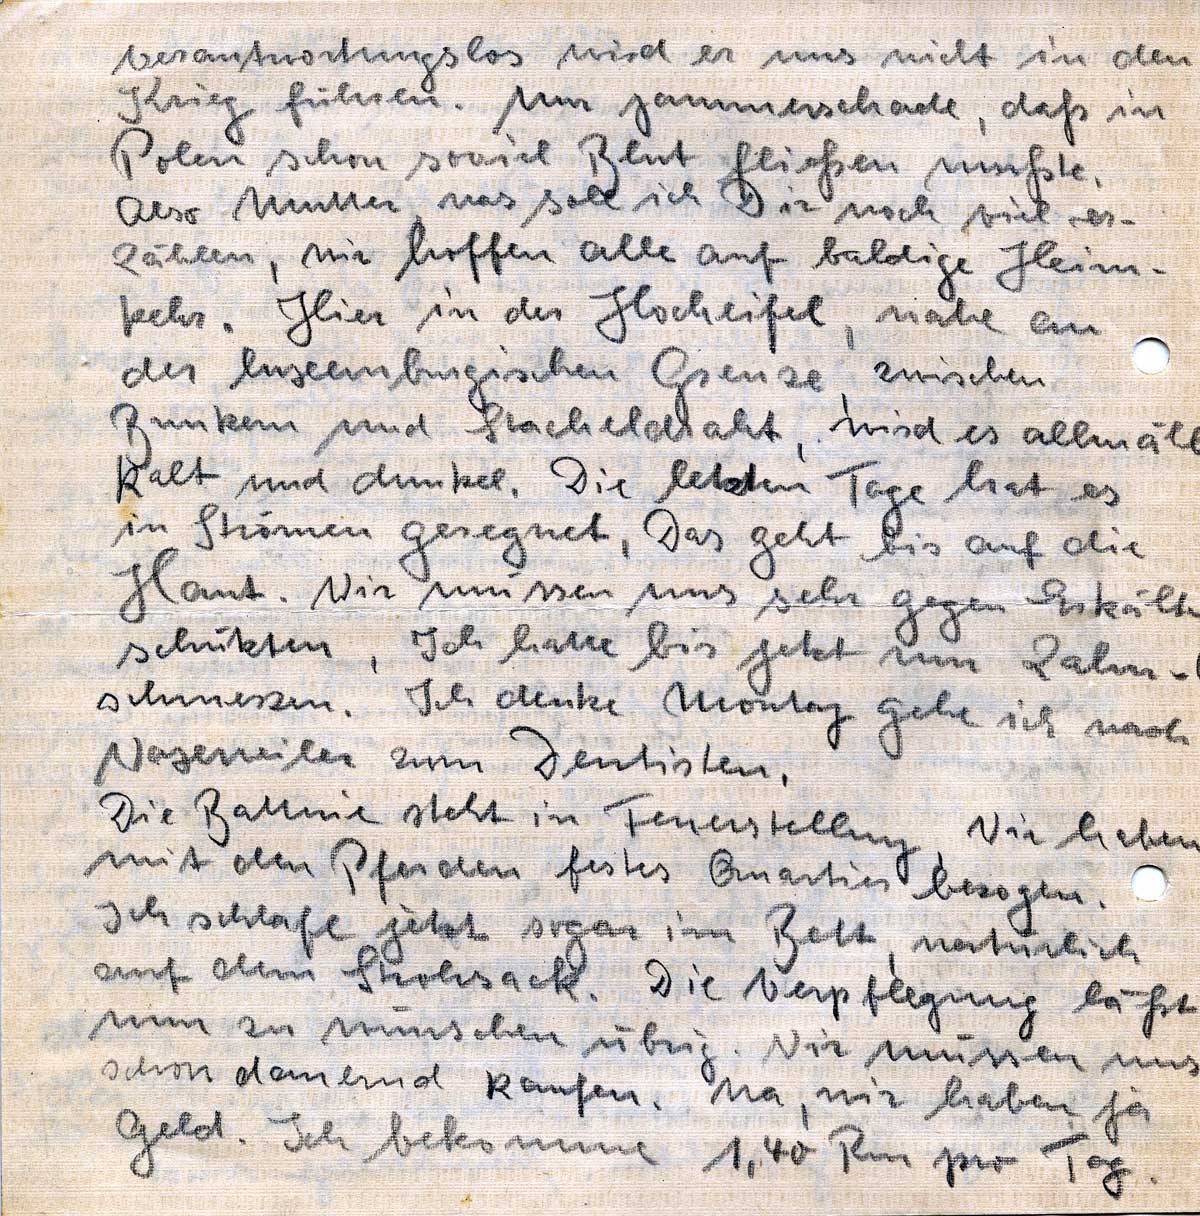 verantwortungslos wird er uns nicht in den
Krieg führen. Nur jammerschade, daß in
Polen schon soviel Blut fließen mußte.
Also Mutter, was soll ich Dir noch viel er-
zählen, wir hoffen alle auf baldige Heim-
kehr. Hier in der Hocheifel, nahe an
der luxemburgischen Grenze, zwischen
Bunkern und Stacheldraht, wird es allmähl
kalt und dunkel. Die letzten Tage hat es
in Strömen geregnet. Das geht bis auf die
Haut. Wir müssen uns sehr gegen Erkält
schützten, Ich hatte bis jetzt nur Zahn-
schmerzen. Ich denke Montag gehe ich nach
zum Dentisten.
Die Batterie steht in Feuerstellung. Wir haben
mit den Pferden festes Quartier bezogen.
Ich schlafe jetzt sogar im Bett, natürlich
auf dem Strohsack. Die Verpflegung läßt
nur zu wünschen übrig. Wir müssen uns
schon dauernd kaufen. Na, wir haben ja
Geld. Ich bekomme 1,40 Rm pro Tag.